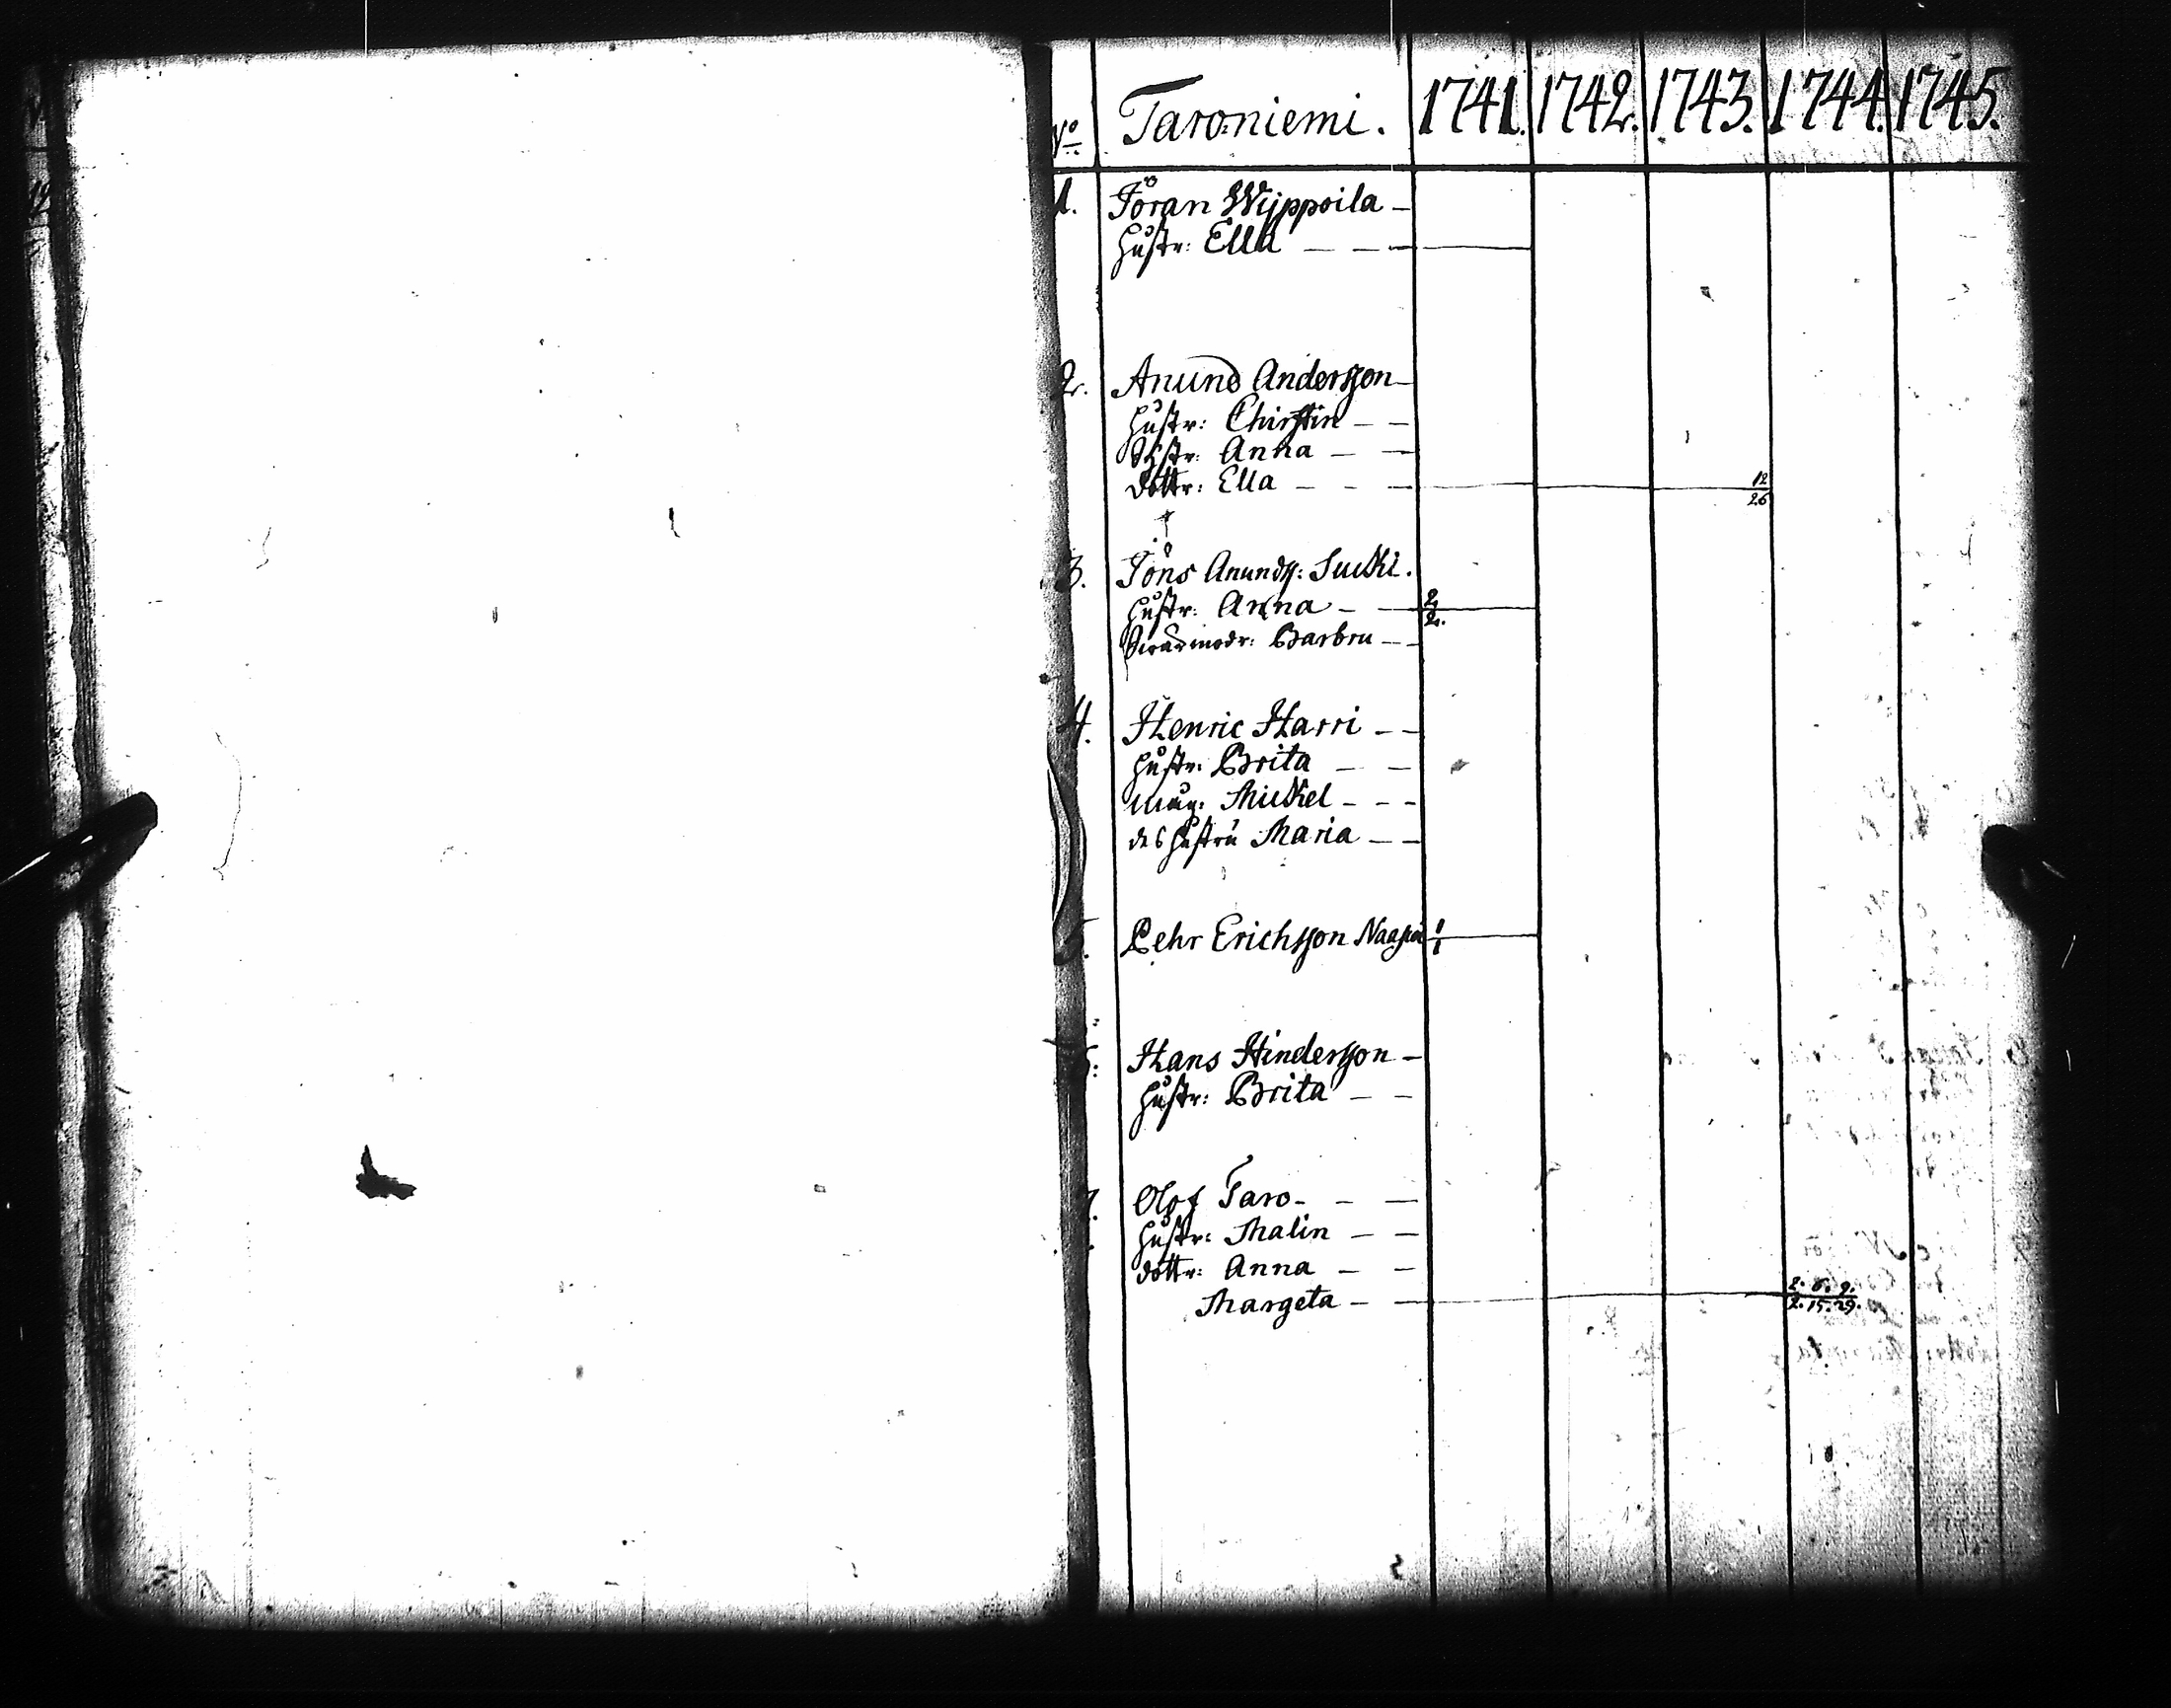 No Taroniemi. 1741. 1742. 1743. 1744. 1745.
1. Jöran Wijppoila
Hustr: Ella
2. Anund Andersson
Hustr: Chirstin
Systr: Anna
dottr: Ella 12 26
3. Jöns Anunds: Sucki.
Hustr: Anna 2 2.
Swärmodr: Barbru
4. Henric Harri
Hustr: Brita
Måg: Mickel
des Hustru Maria
5. Pehr Erichsson 1 1
6. Hans Hindersson
Hustr: Brita
7. Olof Taro
Hustr: Malin
dottr: Anna
Margeta 2. 6. 9. 2. 15. 29.